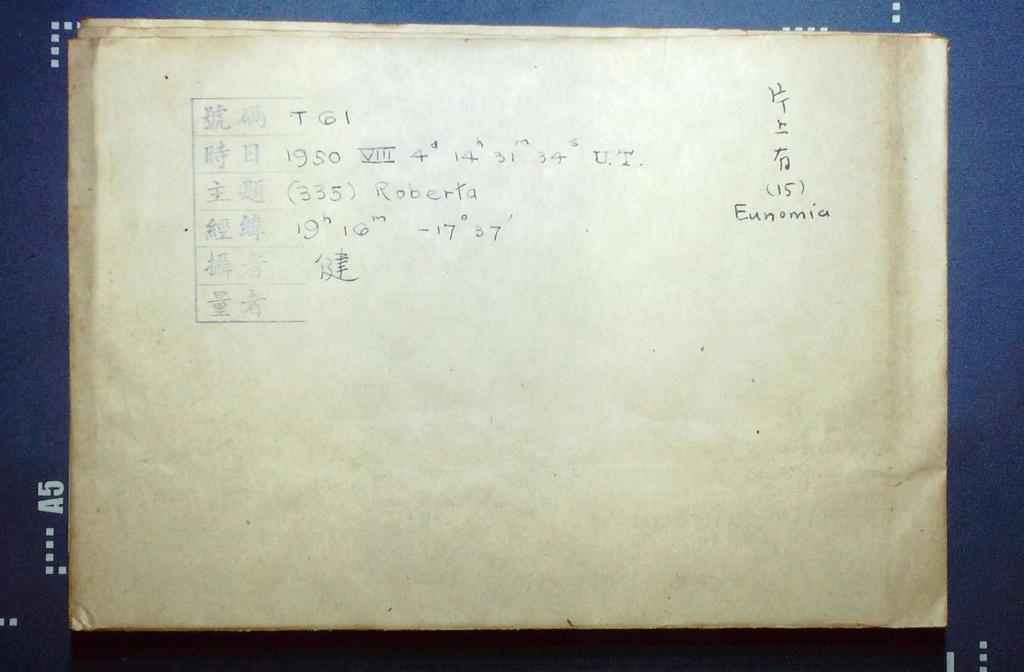 號碼 T 61
時日 1950 VIII 4ᵈ 14ʰ 31ᵐ 34ˢ U.T.
主題 (335) Roberta
經緯 19ʰ 16ᵐ -17° 37′
攝者 健
量者
片上有
(15)
Eunomia
A5